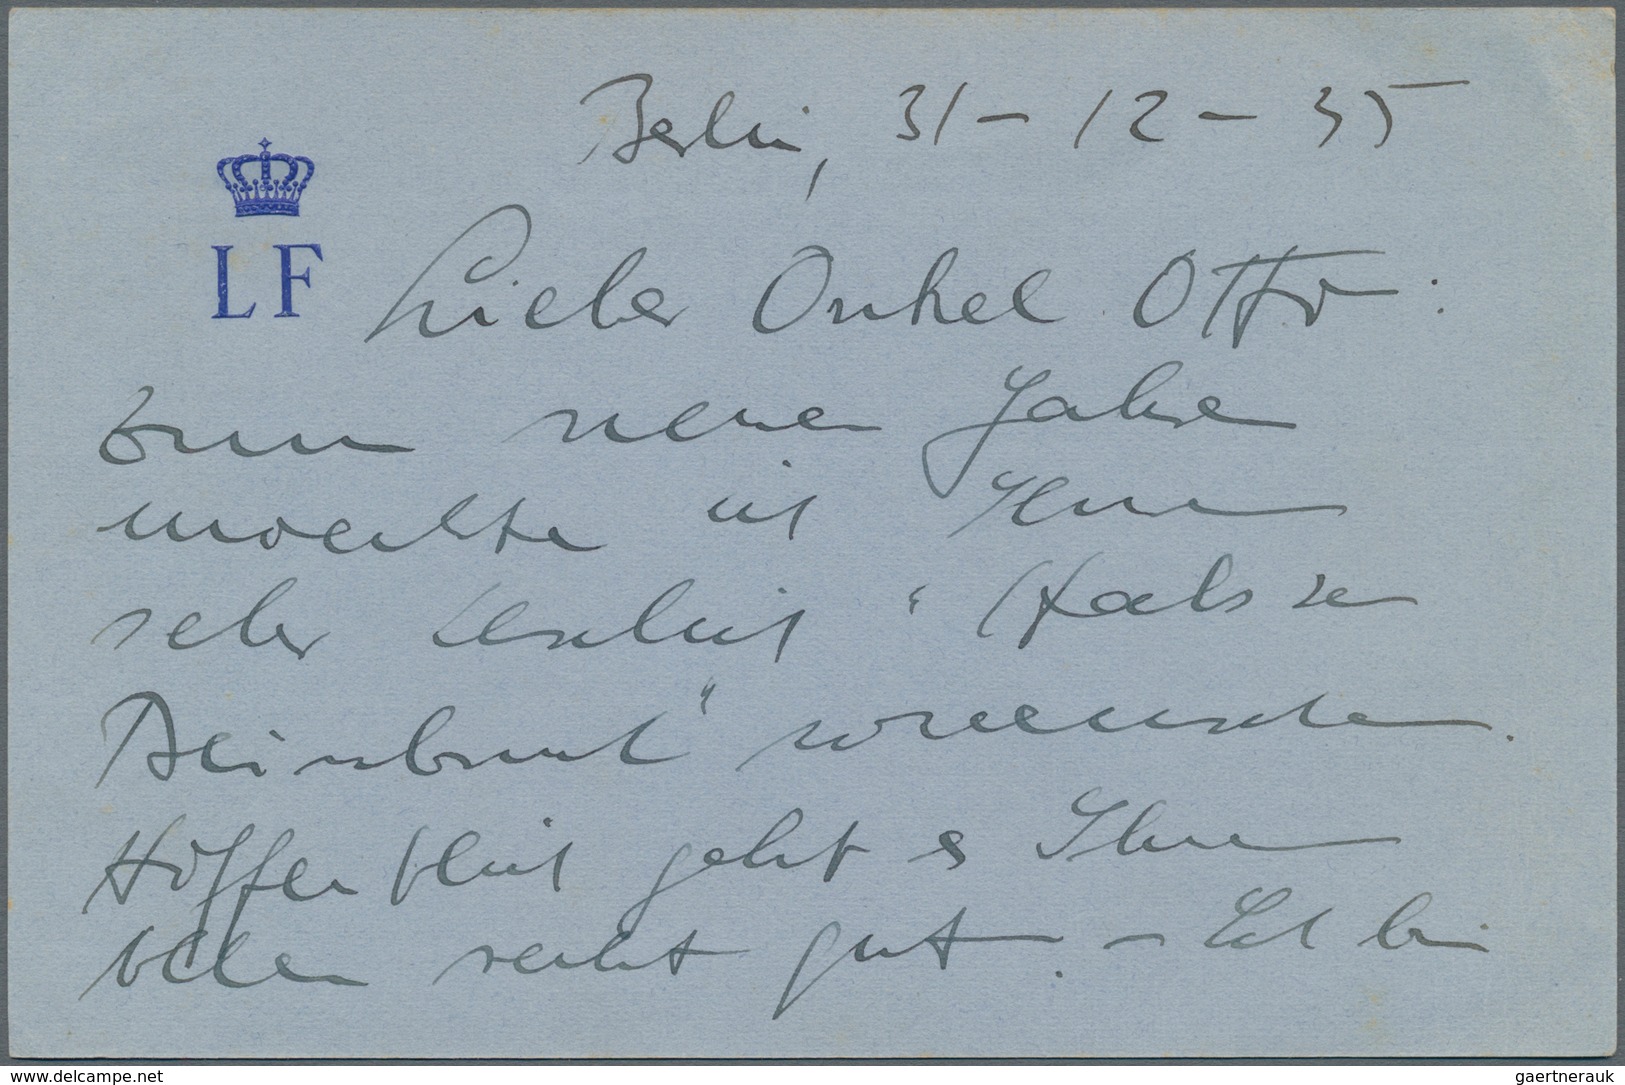 Berlin, 31-12-35
LF
Lieber Onkel Otto:
zum neuen Jahre
moechte ich Ihnen
sehr herzlich "Hals u
Beinbruch" wuenschen.
Hoffentlich geht es Ihnen
allen recht gut. - Ich bin
www.delcampe.net
gaertnerauk